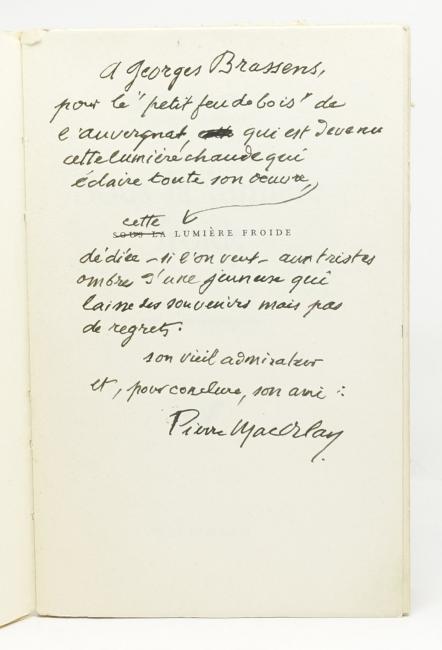 A Georges Brassens,
pour le "petit feu de bois" de
l'auvergnat, qui est devenu
cette lumière chaude qui
éclaire toute son oeuvre,
cette
SOUS LA LUMIÈRE FROIDE
dédiée - si l'on veut - aux tristes
ombres d'une jeunesse qui
laisse des souvenirs mais pas
de regrets.
son vieil admirateur
et, pour conclure, son ami :
Pierre Mac Orlan